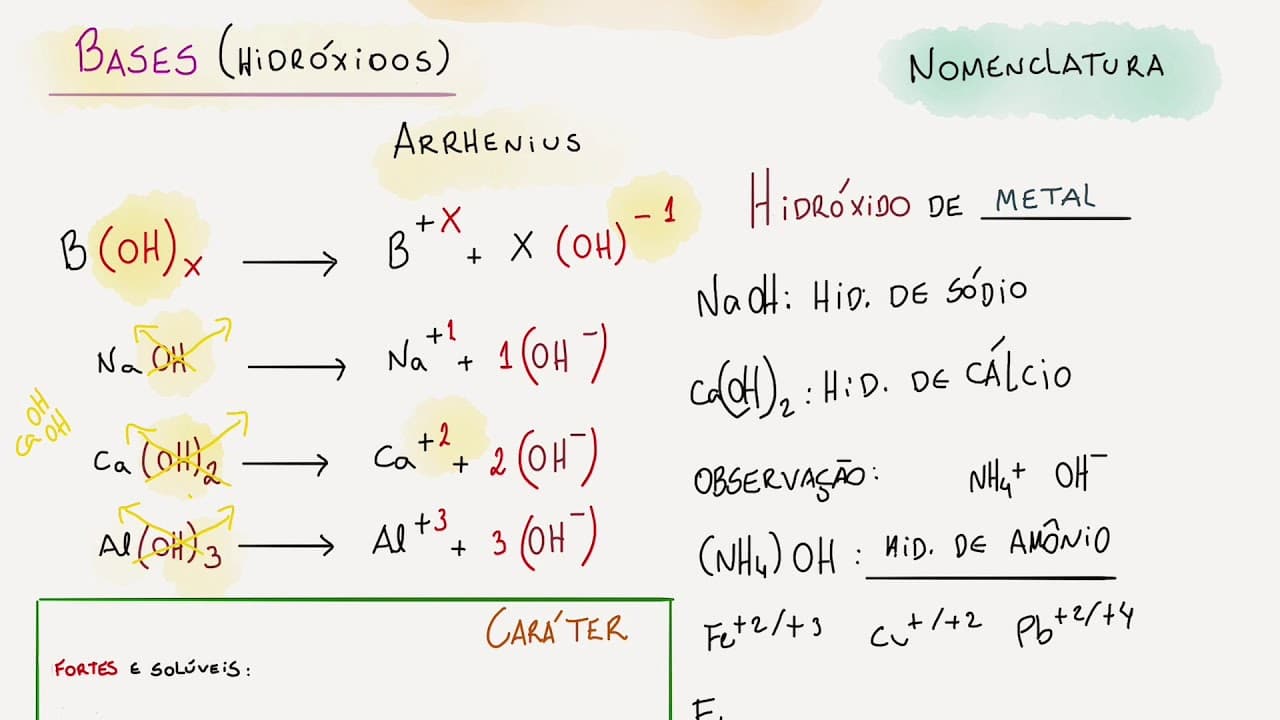 BASES (HIDRÓXIDOS)
ARRHENIUS
B(OH)x ⟶ B+x + X (OH)-1
NaOH ⟶ Na+1 + 1(OH-)
Ca(OH)2 ⟶ Ca+2 + 2(OH-)
Ca OH
OH
Al(OH)3 ⟶ Al+3 + 3(OH-)
CARÁTER
FORTES E SOLÚVEIS:
NOMENCLATURA
HIDRÓXIDO DE METAL
NaOH: HID. DE SÓDIO
Ca(OH)2: HID. DE CÁLCIO
OBSERVAÇÃO: NH4+ OH-
(NH4)OH: HID. DE AMÔNIO
Fe+2/+3 Cu+/+2 Pb+2/+4